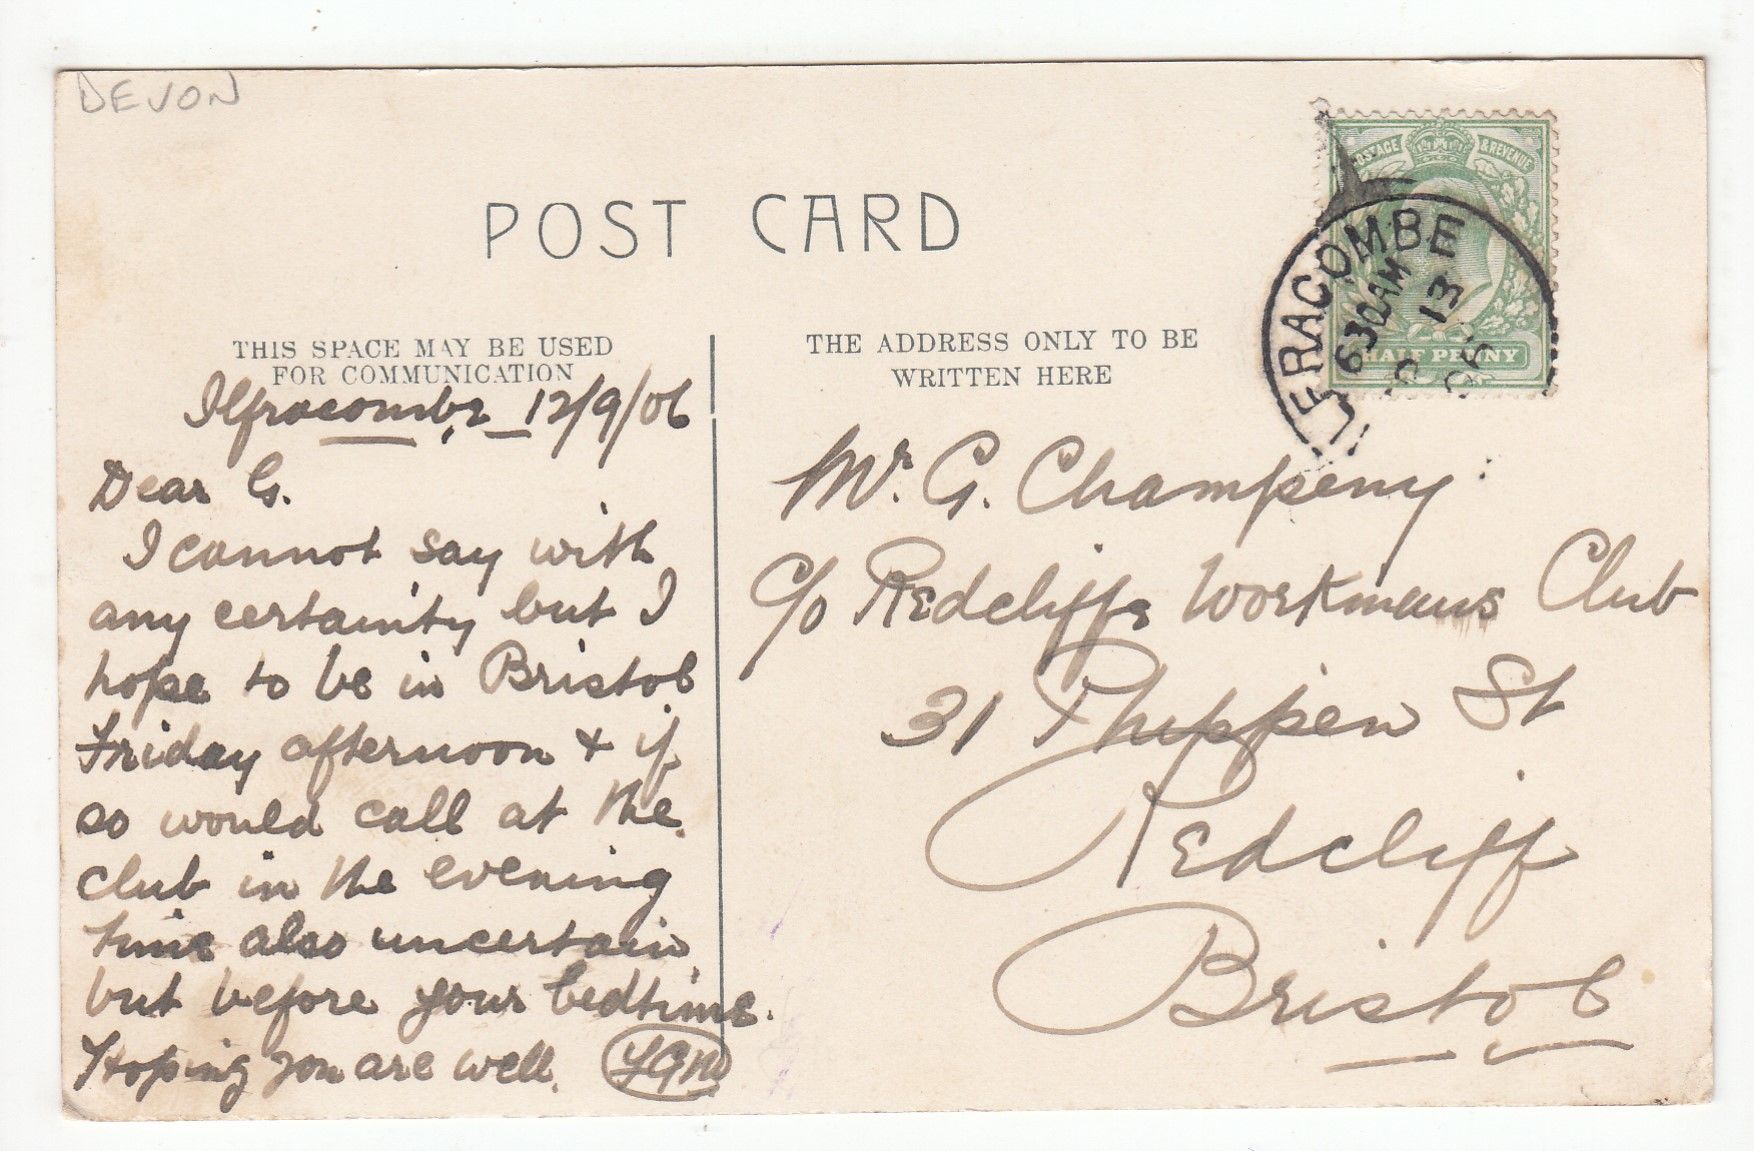 DEVON
POST CARD
THIS SPACE MAY BE USED
FOR COMMUNICATION
Ilfracombe, 12/9/06
Dear G.
I cannot say with
any certainity but I
hope to be in Bristol
Friday afternoon & if
so would call at the
club in the evening
time also uncertain
but before your bedtime.
Hoping you are well.
THE ADDRESS ONLY TO BE
WRITTEN HERE
POSTAGE & REVENUE
HALF PENNY
ILFRACOMBE
630AM
13
06
Mr. G. Champeny
c/o Redcliffe Workmans Club
31 Phippen St
Redcliff
Bristol